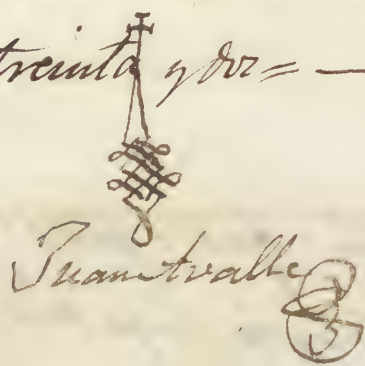 treinta y dos = —
Juan Ovalle